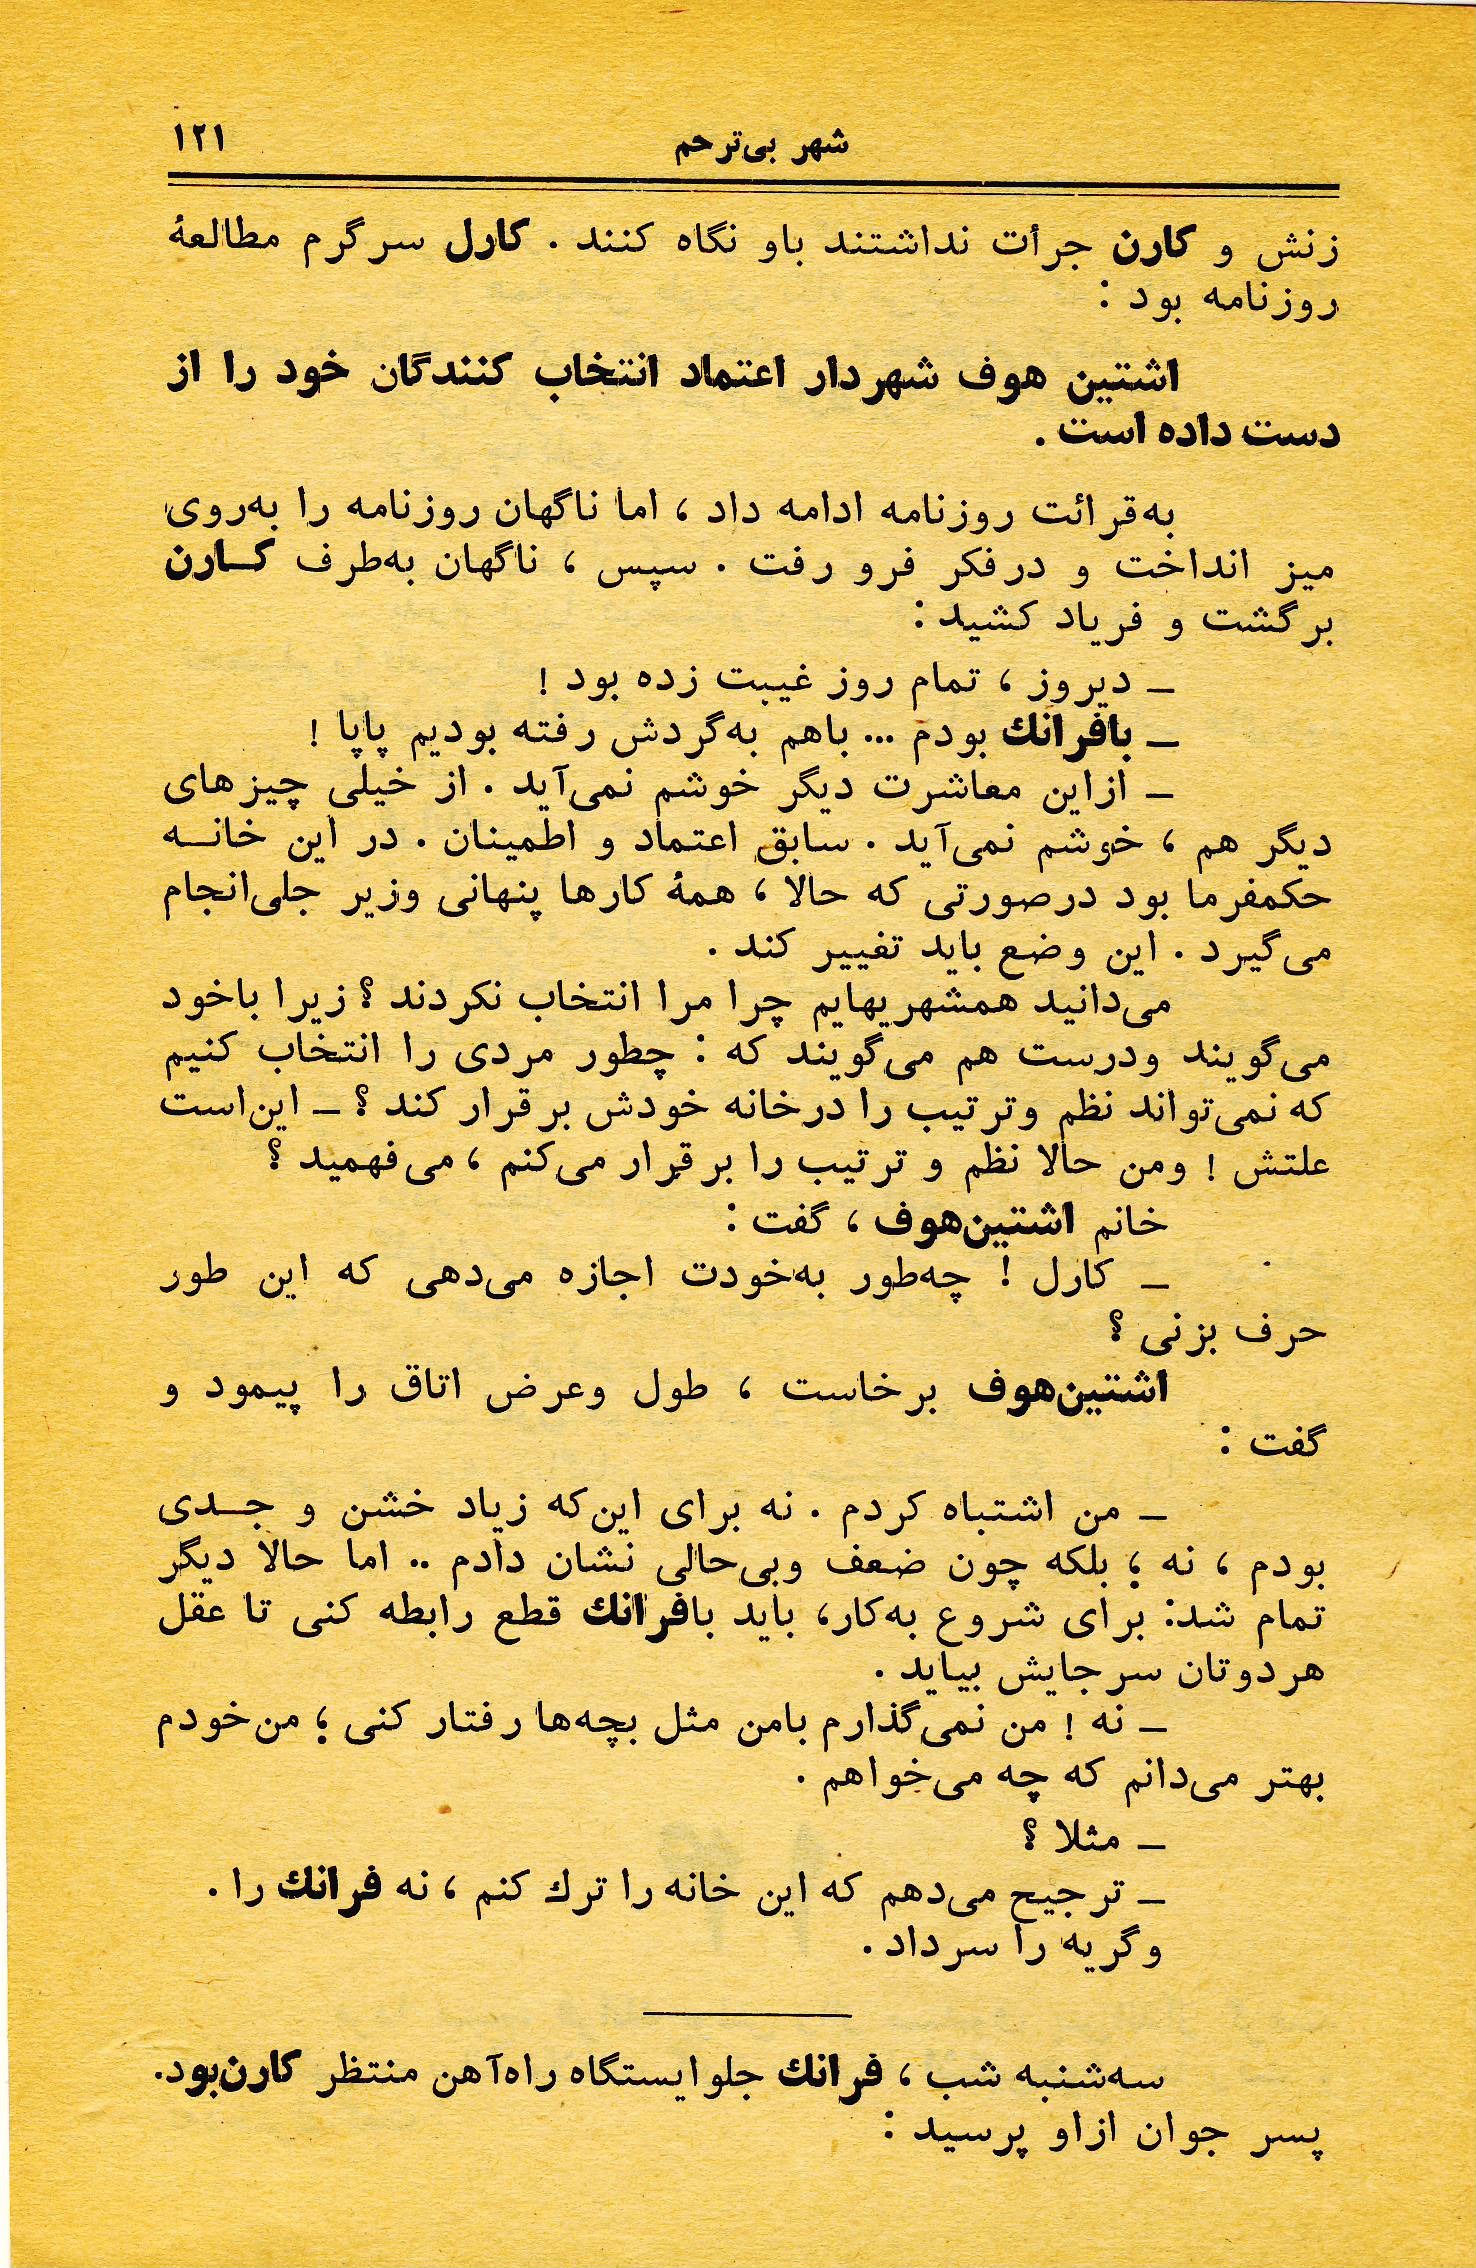 شهر بی‌ترحم ۱۲۱
زنش و کارن جرأت نداشتند باو نگاه کنند . کارل سرگرم مطالعهٔ
روزنامه بود :
اشتین هوف شهردار اعتماد انتخاب کنندگان خود را از
دست داده است .
به‌قرائت روزنامه ادامه داد ، اما ناگهان روزنامه را به‌روی
میز انداخت و درفکر فرو رفت . سپس ، ناگهان به‌طرف کـارن
برگشت و فریاد کشید :
ـ دیروز ، تمام روز غیبت زده بود !
ـ بافرانك بودم ... باهم به‌گردش رفته بودیم پاپا !
ـ ازاین معاشرت دیگر خوشم نمی‌آید . از خیلی چیزهای
دیگر هم ، خوشم نمی‌آید . سابق اعتماد و اطمینان . در این خانـه
حکمفرما بود درصورتی که حالا ، همهٔ کارها پنهانی وزیر جلی‌انجام
می‌گیرد . این وضع باید تغییر کند .
می‌دانید همشهریهایم چرا مرا انتخاب نکردند ؟ زیرا باخود
می‌گویند ودرست هم می‌گویند که : چطور مردی را انتخاب کنیم
که نمی‌تواند نظم وترتیب را درخانه خودش برقرار کند ؟ ـ این‌است
علتش ! ومن حالا نظم و ترتیب را برقرار می‌کنم ، می‌فهمید ؟
خانم اشتین‌هوف ، گفت :
ـ کارل ! چه‌طور به‌خودت اجازه می‌دهی که این طور
حرف بزنی ؟
اشتین‌هوف برخاست ، طول وعرض اتاق را پیمود و
گفت :
ـ من اشتباه کردم . نه برای این‌که زیاد خشن و جـدی
بودم ، نه ؛ بلکه چون ضعف وبی‌حالی نشان دادم .. اما حالا دیگر
تمام شد: برای شروع به‌کار، باید بافرانك قطع رابطه کنی تا عقل
هردوتان سرجایش بیاید .
ـ نه ! من نمی‌گذارم بامن مثل بچه‌ها رفتار کنی ؛ من‌خودم
بهتر می‌دانم که چه می‌خواهم .
ـ مثلا ؟
ـ ترجیح می‌دهم که این خانه را ترك کنم ، نه فرانك را .
وگریه را سرداد .
سه‌شنبه شب ، فرانك جلوایستگاه راه‌آهن منتظر کارن‌بود.
پسر جوان ازاو پرسید :